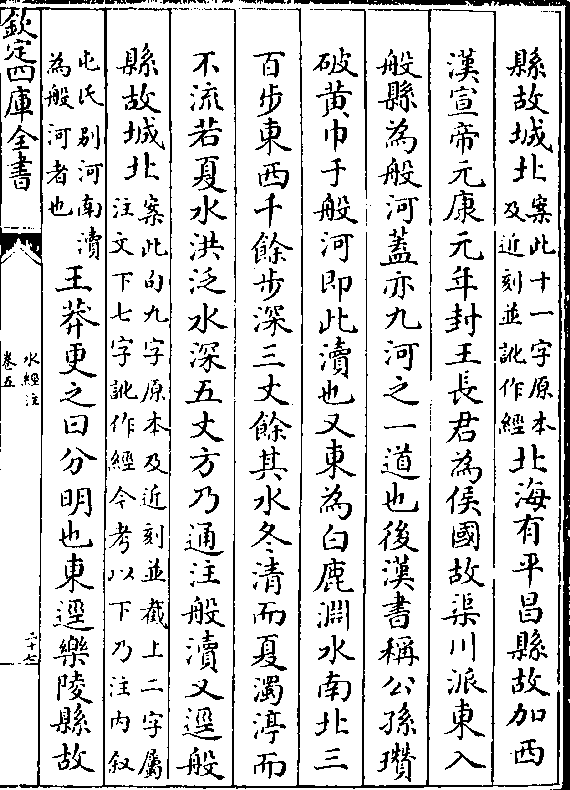 縣故城北案此十一字原本及近刻並訛作經北海有平昌縣故加西
漢宣帝元康元年封王長君為侯國故渠川派東入
般縣為般河蓋亦九河之一道也後漢書稱公孫瓚
破黃巾于般河即此瀆也又東為白鹿淵水南北三
百步東西千餘步深三丈餘其水冬清而夏濁渟而
不流若夏水洪泛水深五丈方乃通注般瀆又逕般
縣故城北案此句九字原本及近刻並截上二字屬注文下七字訛作經今考以下乃注內叙
屯氏別河南瀆為般河者也王莽更之曰分明也東逕樂陵縣故
欽定四庫全書
水經注
卷五
二十七